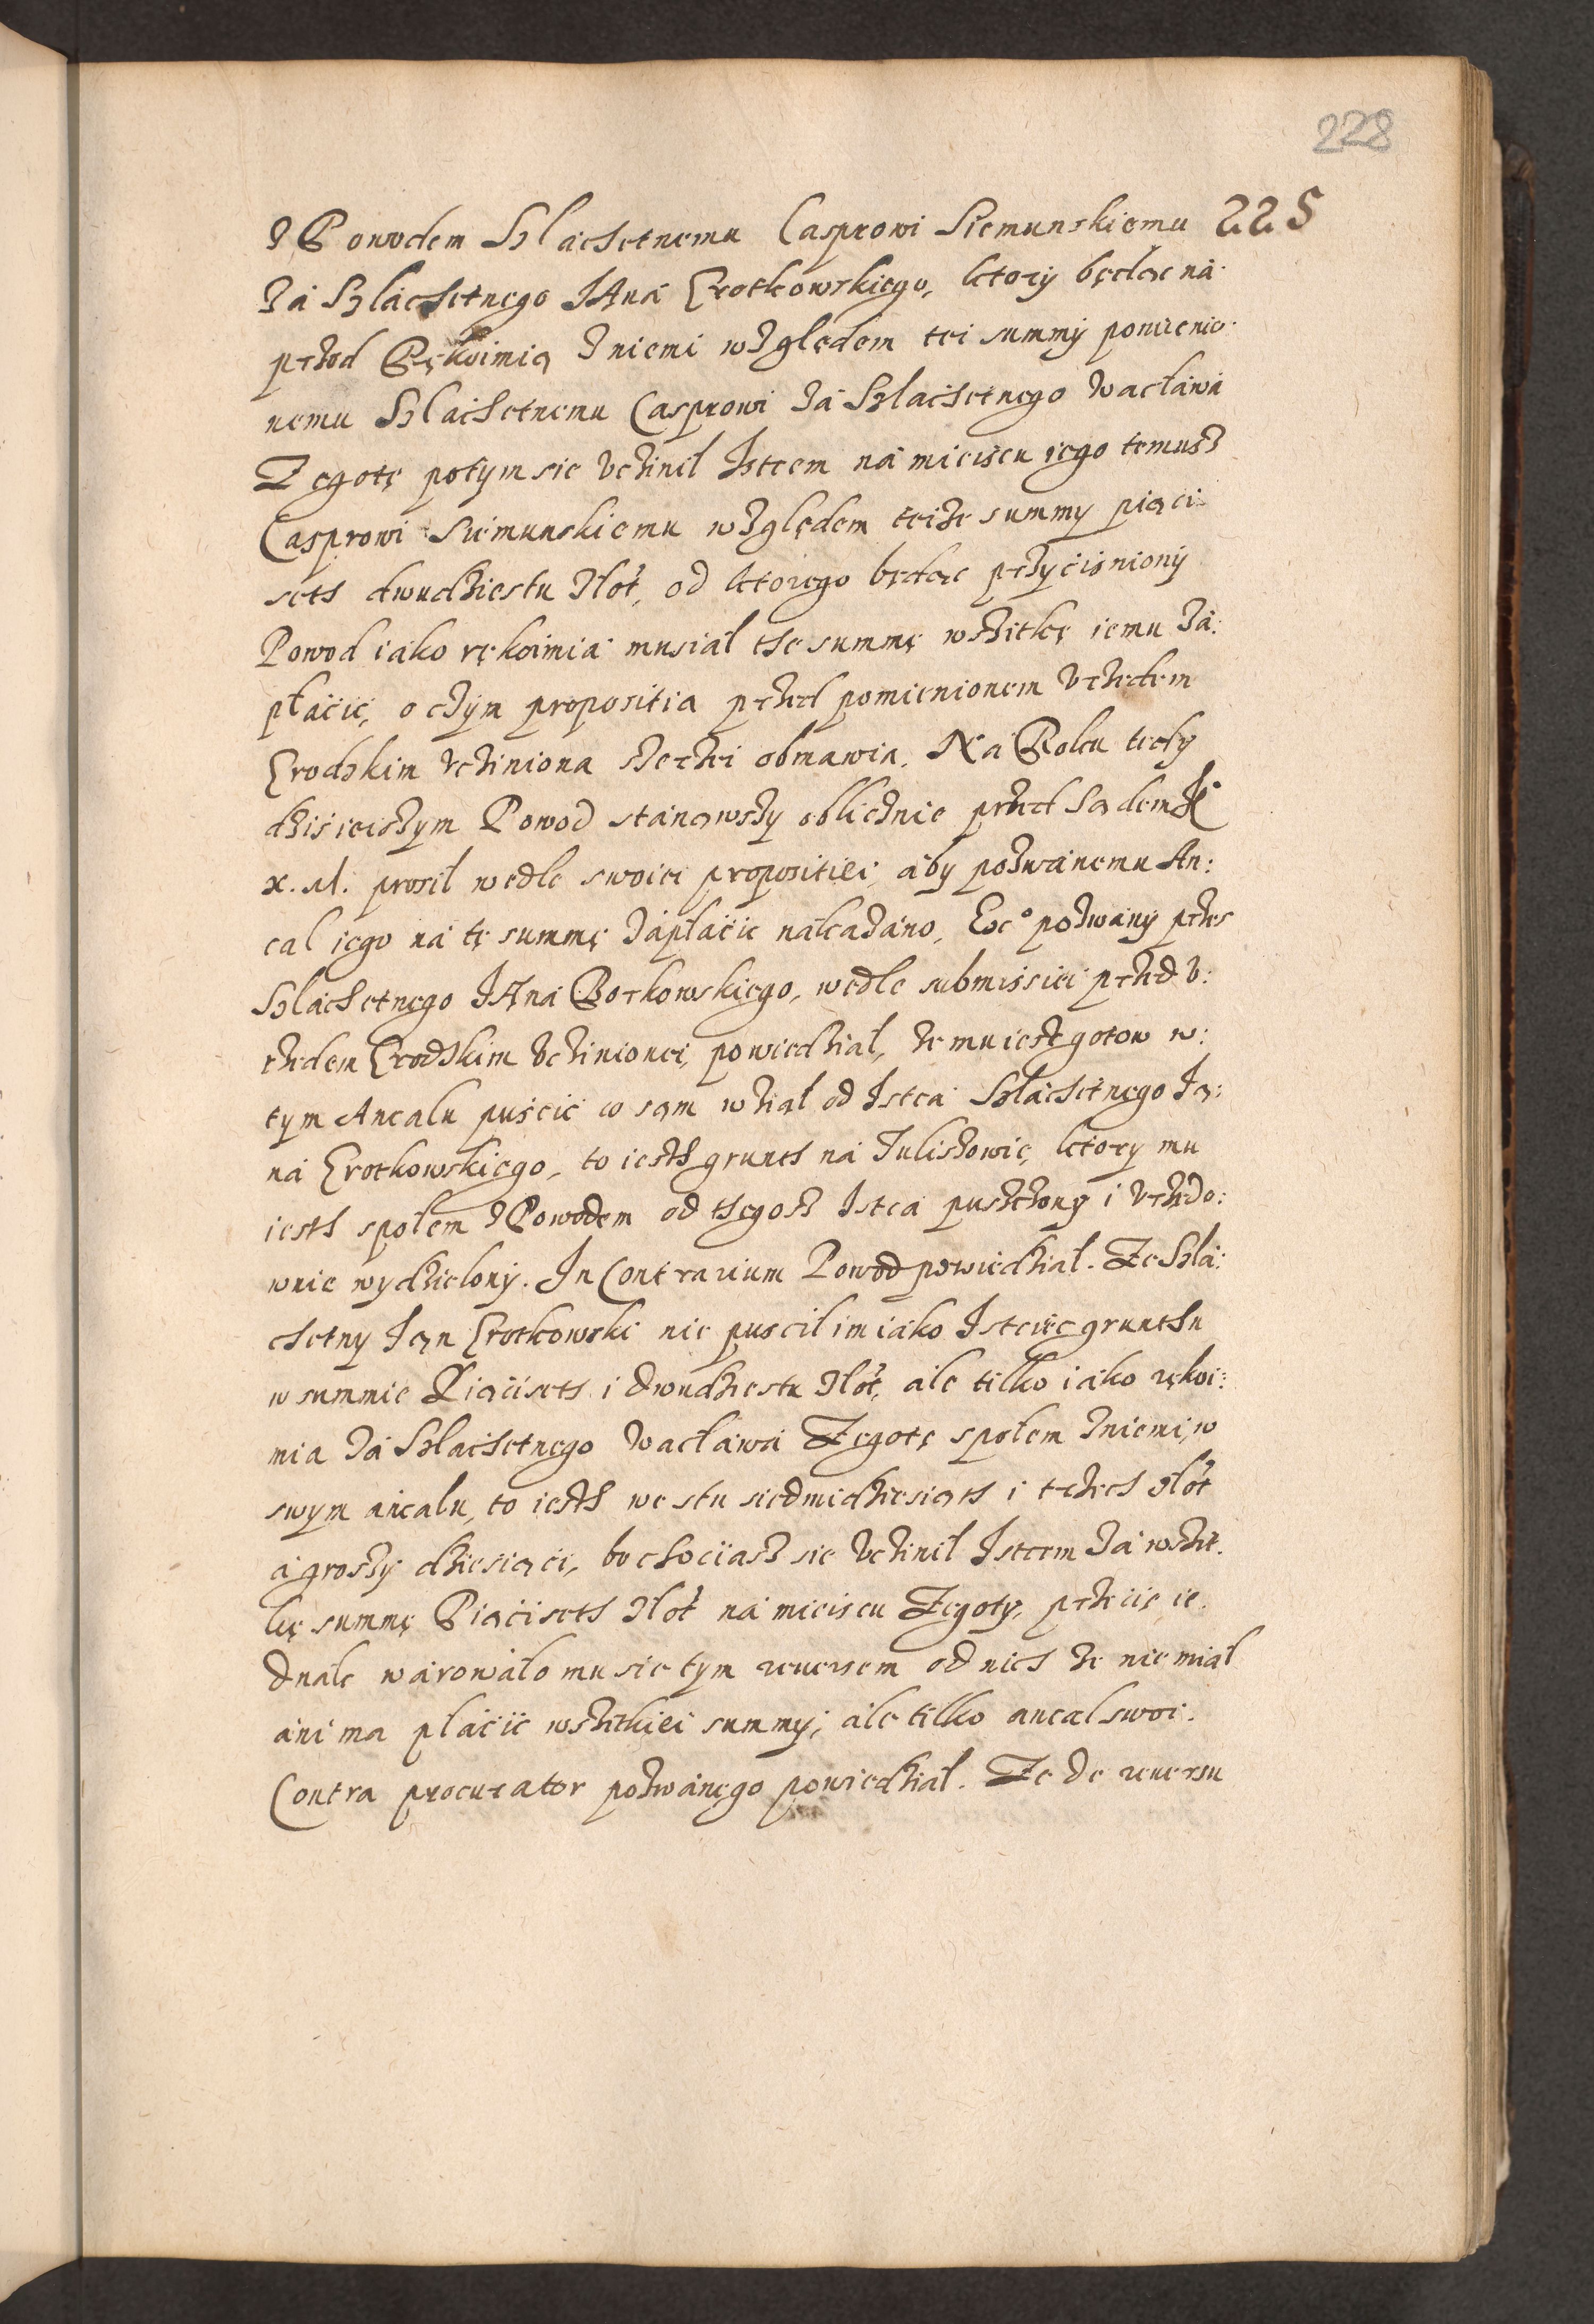 228
z Powodem Szlachetnemu Casprowi Siemunskiemu 225
zá Szláchetnego JAná Grotkowskiego, ktory będąc ná:
przod Rękoimią z niemi względem tei summÿ pomienio:
nemu Szlachetnemu Casprowi zá Szlachetnego Wacłáwá
Zegotę potym sie vczinil Istcem ná mieiscu iego temusz
Casprowi Siemunskiemu względem teize summy piąci
seth dwudziestu złot, od ktorego będąc przÿcisnionÿ
Powod iako rękoimia musiál the summę wszitkę iemu zá:
płácić, o czÿm propositia przed pomienionem vrzedem
Grodzkim vcziniona szerzei obmawia. Ná Roku tedy
dzisieiszÿm Powod stanąwszÿ oblicznie przed Sądem
x. M. prosil wedle swoiei propositiei, áby pozwánemu An:
cal iego ná tę summę zápłácic nákazáno, Ec° pozwánÿ przes
Szlachetnego JAná Borkowskiego, wedle submissiei przed v:
rzedem Grodzkim vczinionei, powiedzial, ze mu iest gotow w:
tÿm Ancalu puscić co sąm wziął od Istca Szláchetnego Ją:
ná Grotkowskiego, to iesth grunth ná Juliszowie, ktory mu
iesth społem z Powodem od thegosz Istca puszczonÿ i vrzędo:
wnie wydzielonÿ. In Contrarium Powod powiedzial. Ze Szlá:
chetny Ją̨n Grotkowski nie puscil im iáko Istciec grunthu
w summie Piąciseth i dwudziestu złot, ále tilko iáko rękoi:
mia zá Szláchetnego Wacłáwá Zegotę społem z niemi, w
swÿm áncalu, to iesth we stu siedmidziesiąth i trzech złot
á groszÿ dziesiąci, bo chociasz sie vczinil Istcem zá wszit:
kę summę Piąciseth złot ná mieiscu Zegoty, przecie ie:
dnák wárowáło mu sie tÿm reuersem od nich ze nie miał
áni ma płácic wszitkiei summÿ, ále tilko ancal swoi.
Contra procurator pozwánego powiedział. Ze de reuersu